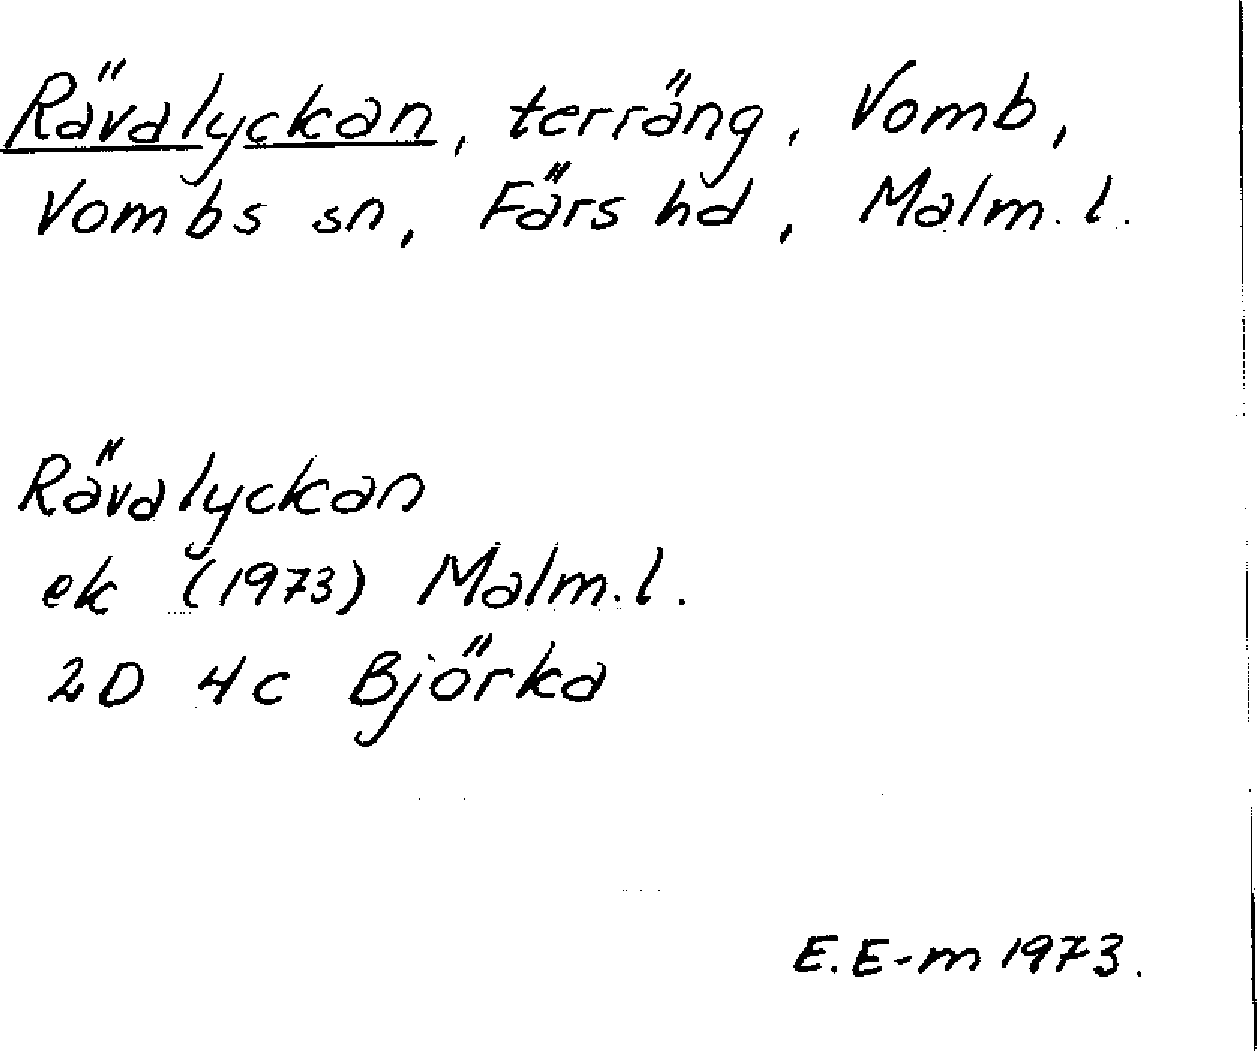 Rävalyckan, terräng, Vomb,
Vombs sn, Färs hd, Malm. l.
Rävalyckan
ek (1973) Malm. l.
2D 4c Björka
E. E-m 1973.